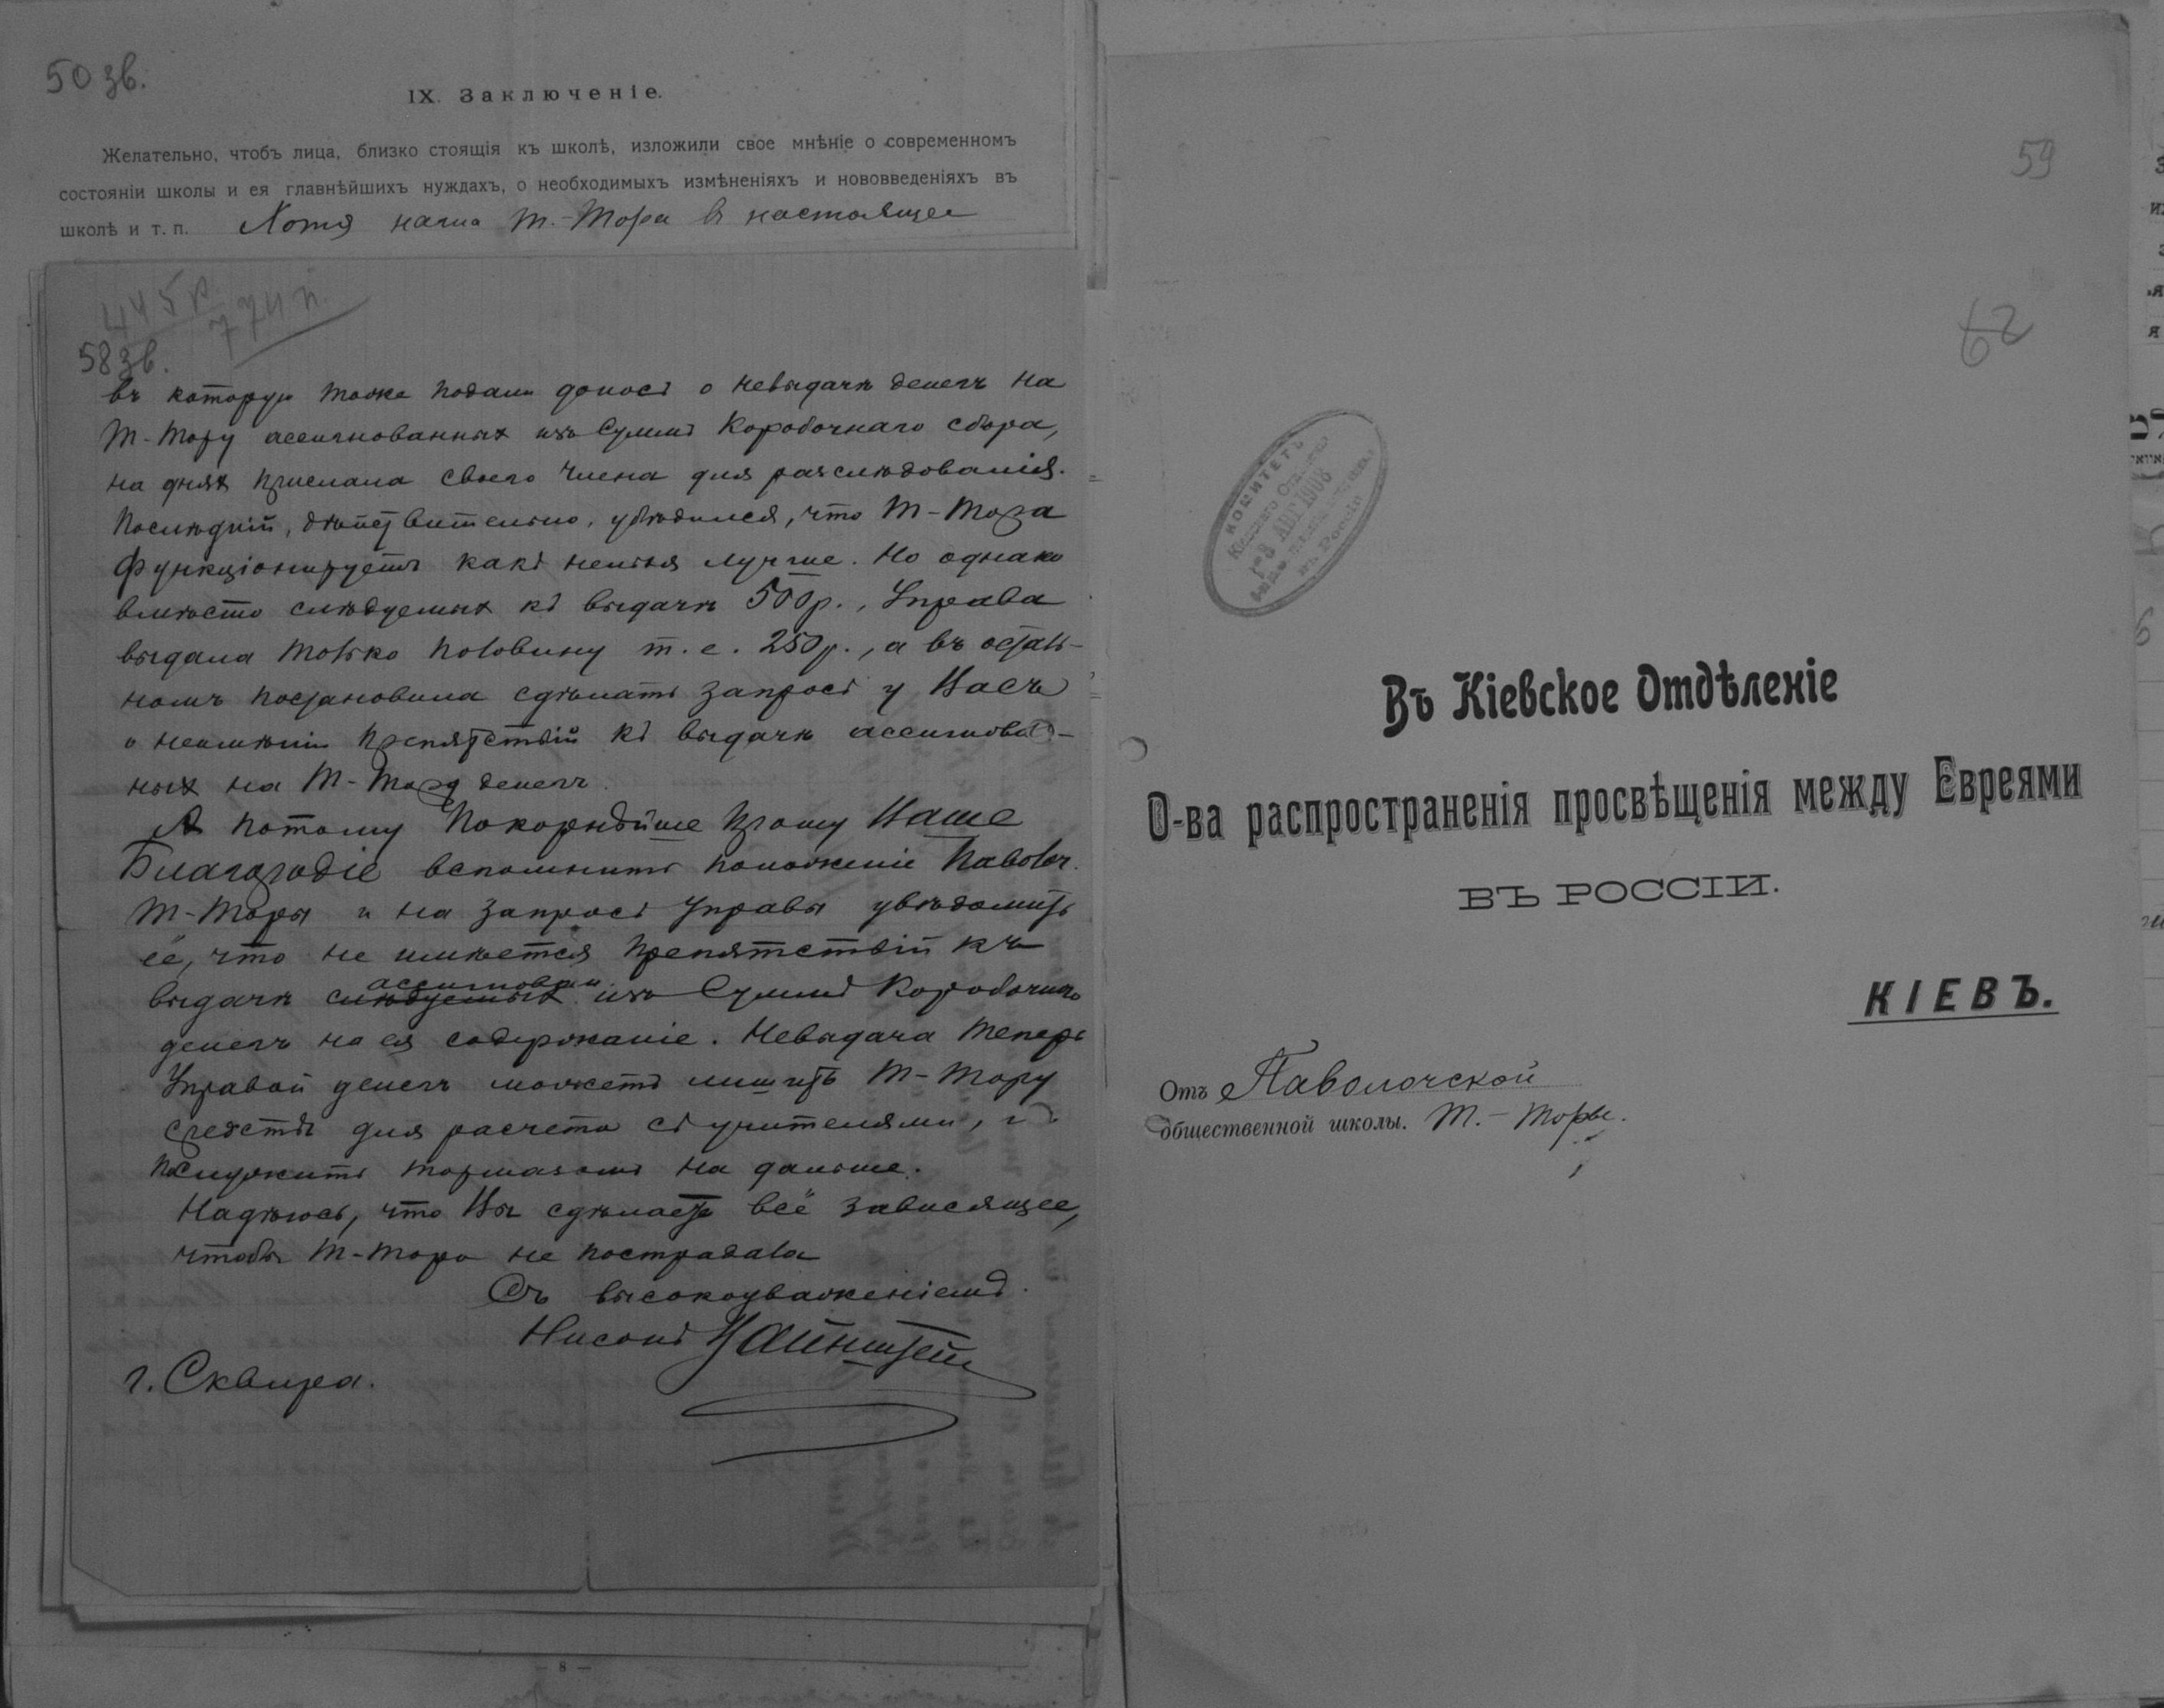 50 зв.
IX. Заключеніе.
Желательно, чтобъ лица, близко стоящія къ школѣ, изложили свое мнѣніе о современномъ
состояніи школы и ея главнѣйшихъ нуждахъ, о необходимыхъ измѣненіяхъ и нововведеніяхъ въ
школѣ и т. п. Хотя наша Т.-Тора в настоящее
445 р. 74 п.
58 зв.
въ которую тоже подали доносъ о невыдачѣ денегъ на
Т-Тору ассигнованных изъ Суммъ Коробочнаго сбора,
на днях прислала своего члена для разслѣдованія.
Послѣдній, дѣйствительно, убѣдился, что Т-Тора
функціонируетъ какъ нельзя лучше. Но однако
вмѣсто слѣдуемых къ выдачѣ 500 р., Управа
выдала только половину т. е. 250 р., а въ осталь-
номъ постановила сдѣлать запросъ у Васъ
о неимѣніи препятствій къ выдачѣ ассигнован-
ных на Т-Тору денегъ.
А потому покорнѣйше прошу Ваше
Благородіе вспомнить положеніе Паволоч.
Т-Торы и на запросъ Управы увѣдомить
её, что не имѣется препятствій къ
ассигнован.
выдачѣ слѣдуемых изъ Суммъ Коробочнаго
денегъ на ея содержаніе. Невыдача теперь
Управой денегъ можетъ лишить Т-Тору
средствъ для расчета съ учителями, и
послужить тормазомъ на дальше.
Надѣюсь, что Вы сдѣлаете всё зависящее,
чтобы Т-Тора не пострадала
Съ высокоуваженіемъ.
Нисонъ Вайнштейн
г. Сквира.
— 8 —
59
62
КОМИТЕТЪ
Кіевскаго Отдѣленія
3 АВГ 1908
въ Россіи
Въ Кіевское Отдѣленіе
О-ва распространенія просвѣщенія между Евреями
ВЪ РОССІИ.
КІЕВЪ.
Отъ Паволочской
общественной школы. Т.-Торы.